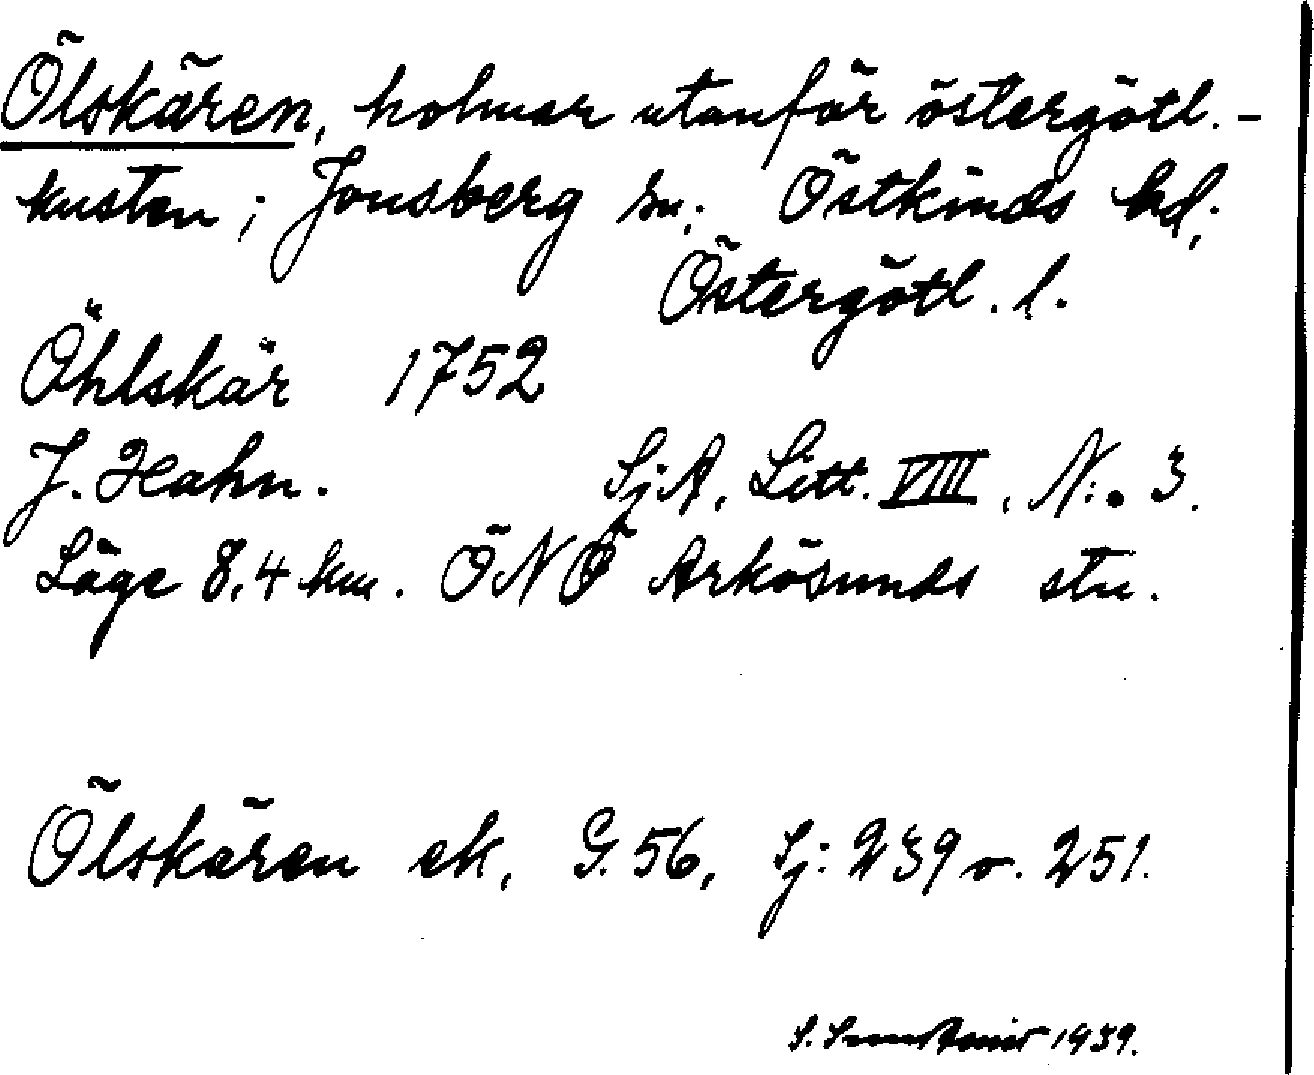 Ölskären, holmar utanför östergötl.-
kusten i Jonsberg sn. Östkinds hd,
Östergötl. l.
Öhlskär 1752
J. Hahn. SjA, Litt. VIII, N:o 3.
Läge 8,4 km. ÖNÖ Arkösunds stn.
Ölskären ek, G. 56, Sj: 239 o. 251.
S. 1939.